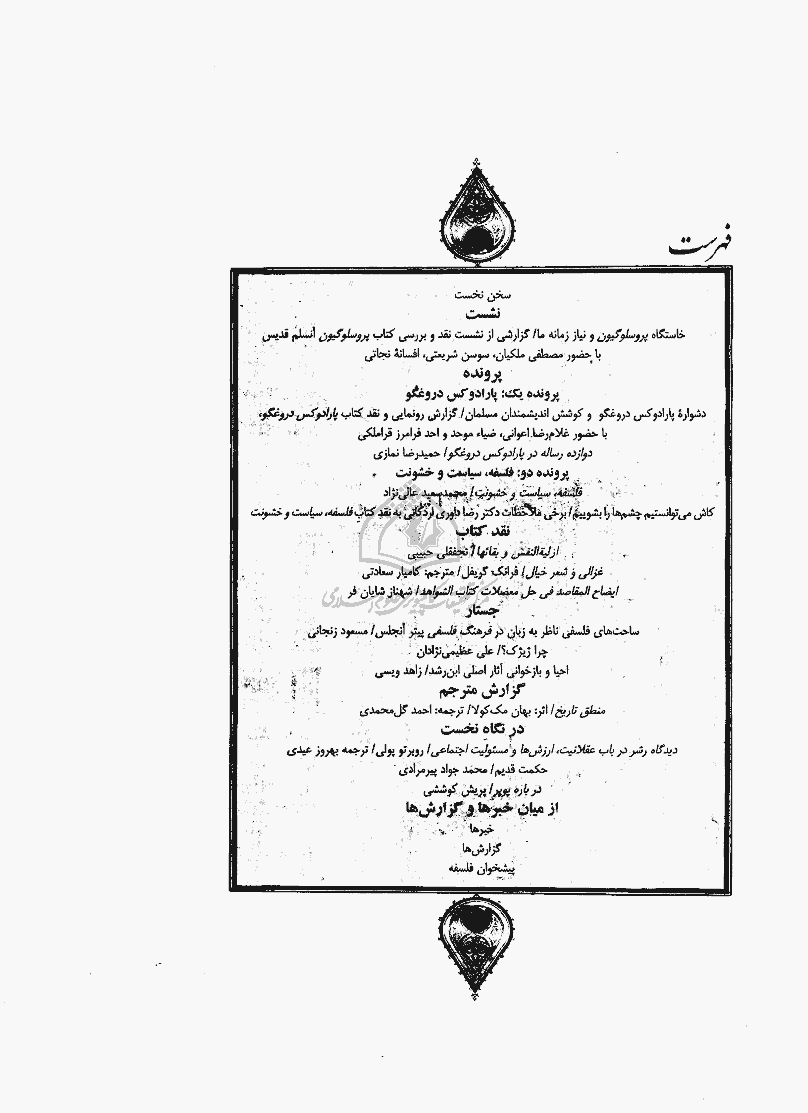 فهرست
سخن نخست
نشست
خاستگاه پروسلوگیون و نیاز زمانه ما/ گزارشی از نشست نقد و بررسی کتاب پروسلوگیون آنسلم قدیس
با حضور مصطفی ملکیان، سوسن شریعتی، افسانهٔ نجاتی
پرونده
پرونده یک: پارادوکس دروغگو
دشوارهٔ پارادوکس دروغگو و کوشش اندیشمندان مسلمان/ گزارش رونمایی و نقد کتاب پارادوکس دروغگو،
با حضور غلامرضا اعوانی، ضیاء موحد و احد فرامرز قراملکی
دوازده رساله در پارادوکس دروغگو/ حمیدرضا نمازی
پرونده دو: فلسفه، سیاست و خشونت
فلسفه، سیاست و خشونت/ محمدسعید عالی‌نژاد
کاش می‌توانستیم چشم‌ها را بشوییم/ برخی ملاحظات دکتر رضا داوری اردکانی به نقد کتاب فلسفه، سیاست و خشونت
نقد کتاب
ازلیةالنفس و بقائها/ نجفقلی حبیبی
غزالی و شعر خیال/ فرانک گریفل/ مترجم: کامیار سعادتی
ایضاح المقاصد فی حل معضلات کتاب الشواهد/ شهناز شایان فر
جستار
ساحت‌های فلسفی ناظر به زبان در فرهنگ فلسفی پیتر آنجلس/ مسعود زنجانی
چرا ژیژک؟/ علی عظیمی‌نژادان
احیا و بازخوانی آثار اصلی ابن‌رشد/ زاهد ویسی
گزارش مترجم
منطق تاریخ/ اثر: بهان مک‌کولا/ ترجمه: احمد گل‌محمدی
در نگاه نخست
دیدگاه رشر در باب عقلانیت، ارزش‌ها و مسئولیت اجتماعی/ روبرتو پولی/ ترجمه بهروز عیدی
حکمت قدیم/ محمد جواد پیرمرادی
در باره پوپر/ پریش کوششی
از میان خبرها و گزارش‌ها
خبرها
گزارش‌ها
پیشخوان فلسفه